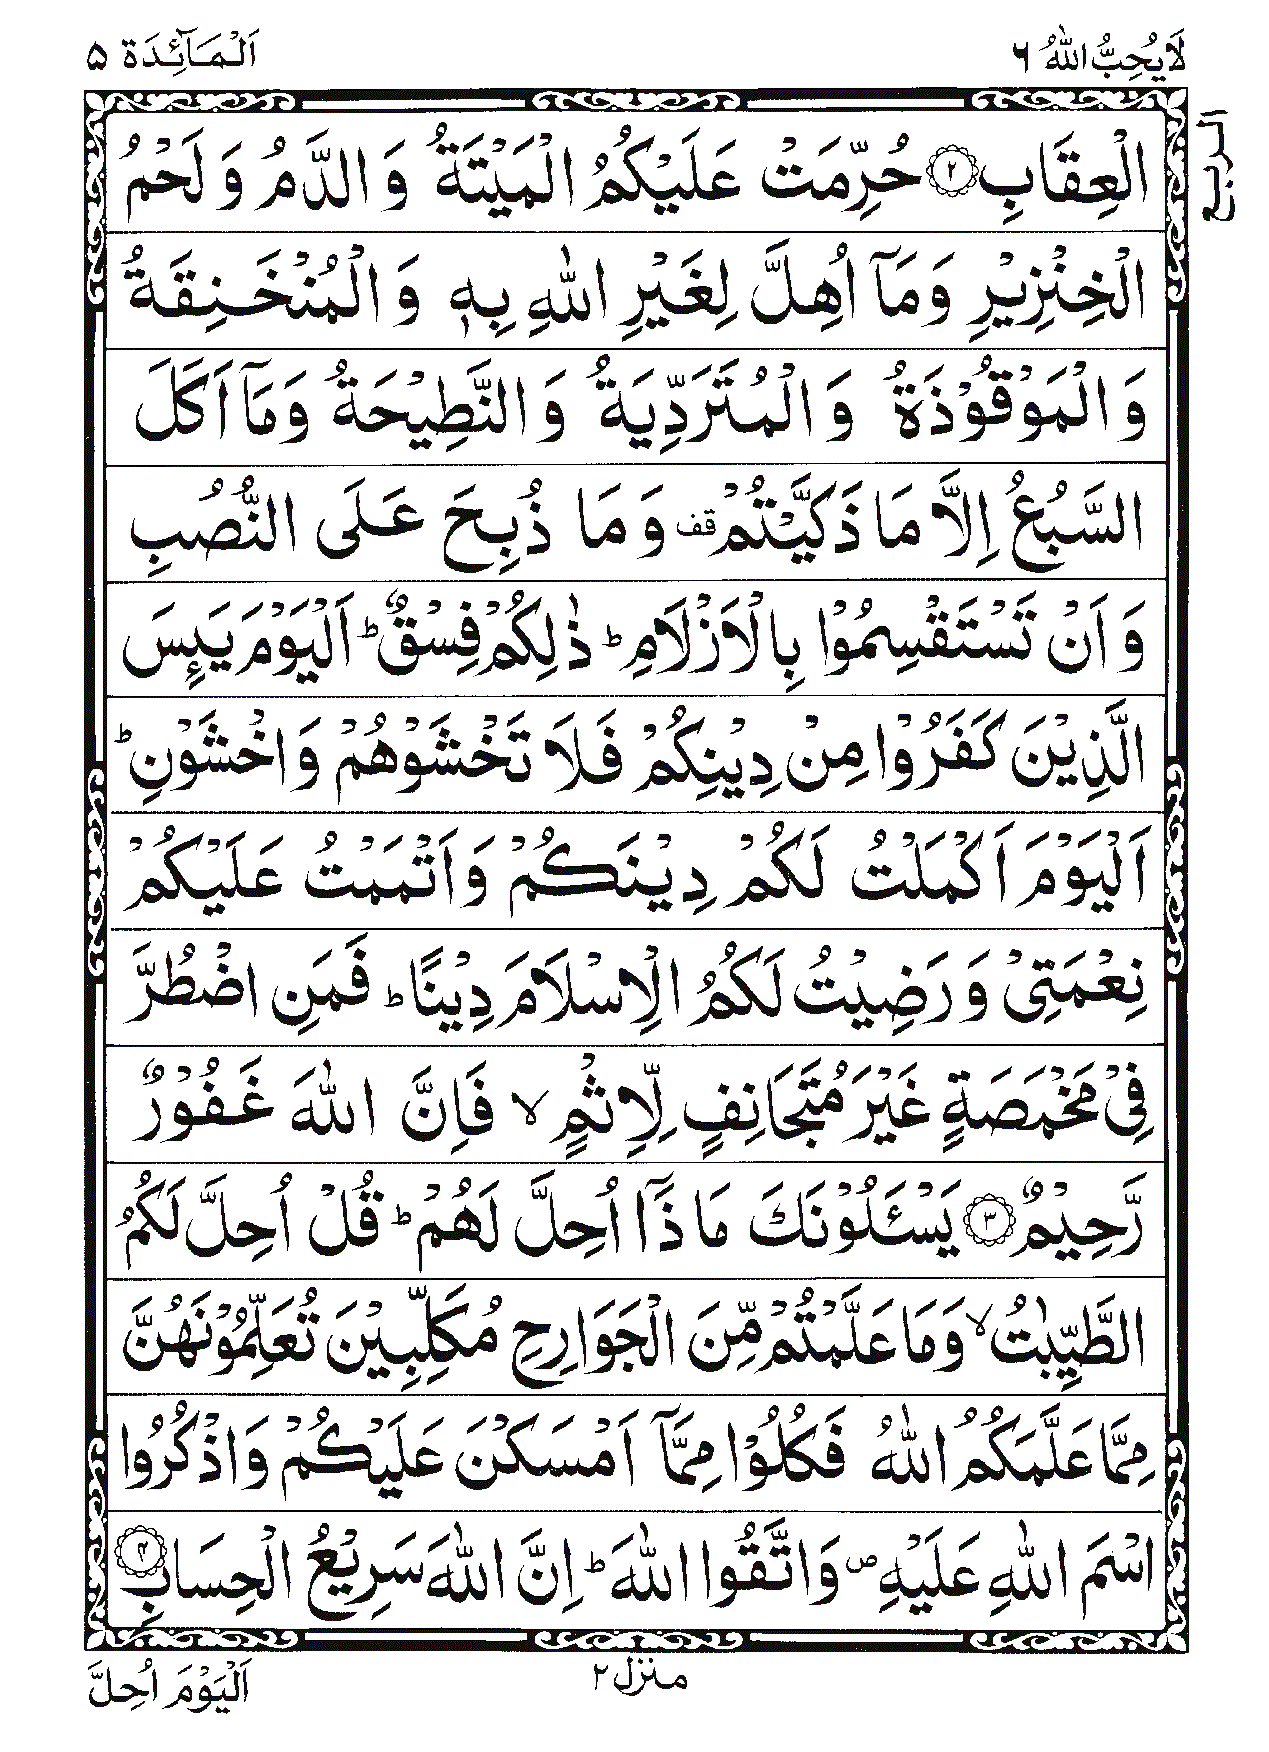 لَا يُحِبُّ اللّٰهُ ٦
اَلْمَآئِدَة ٥
الربع
الْعِقَابِ ۝٢ حُرِّمَتْ عَلَيْكُمُ الْمَيْتَةُ وَ الدَّمُ وَ لَحْمُ
الْخِنْزِيْرِ وَ مَآ اُهِلَّ لِغَيْرِ اللّٰهِ بِهٖ وَ الْمُنْخَنِقَةُ
وَ الْمَوْقُوْذَةُ وَ الْمُتَرَدِّيَةُ وَ النَّطِيْحَةُ وَ مَآ اَكَلَ
السَّبُعُ اِلَّا مَا ذَكَّيْتُمْ قف وَ مَا ذُبِحَ عَلَى النُّصُبِ
وَ اَنْ تَسْتَقْسِمُوْا بِالْاَزْلَامِ ؕ ذٰلِكُمْ فِسْقٌ ؕ اَلْيَوْمَ يَىِٕسَ
الَّذِيْنَ كَفَرُوْا مِنْ دِيْنِكُمْ فَلَا تَخْشَوْهُمْ وَ اخْشَوْنِ ؕ
اَلْيَوْمَ اَكْمَلْتُ لَكُمْ دِيْنَكُمْ وَ اَتْمَمْتُ عَلَيْكُمْ
نِعْمَتِيْ وَ رَضِيْتُ لَكُمُ الْاِسْلَامَ دِيْنًا ؕ فَمَنِ اضْطُرَّ
فِيْ مَخْمَصَةٍ غَيْرَ مُتَجَانِفٍ لِّاِثْمٍ ۙ فَاِنَّ اللّٰهَ غَفُوْرٌ
رَّحِيْمٌ ۝٣ يَسْـَٔلُوْنَكَ مَا ذَآ اُحِلَّ لَهُمْ ؕ قُلْ اُحِلَّ لَكُمُ
الطَّيِّبٰتُ ۙ وَ مَا عَلَّمْتُمْ مِّنَ الْجَوَارِحِ مُكَلِّبِيْنَ تُعَلِّمُوْنَهُنَّ
مِمَّا عَلَّمَكُمُ اللّٰهُ فَكُلُوْا مِمَّآ اَمْسَكْنَ عَلَيْكُمْ وَ اذْكُرُوا
اسْمَ اللّٰهِ عَلَيْهِ ۪ وَ اتَّقُوا اللّٰهَ ؕ اِنَّ اللّٰهَ سَرِيْعُ الْحِسَابِ ۝٤
منزل ٢
اَلْيَوْمَ اُحِلَّ